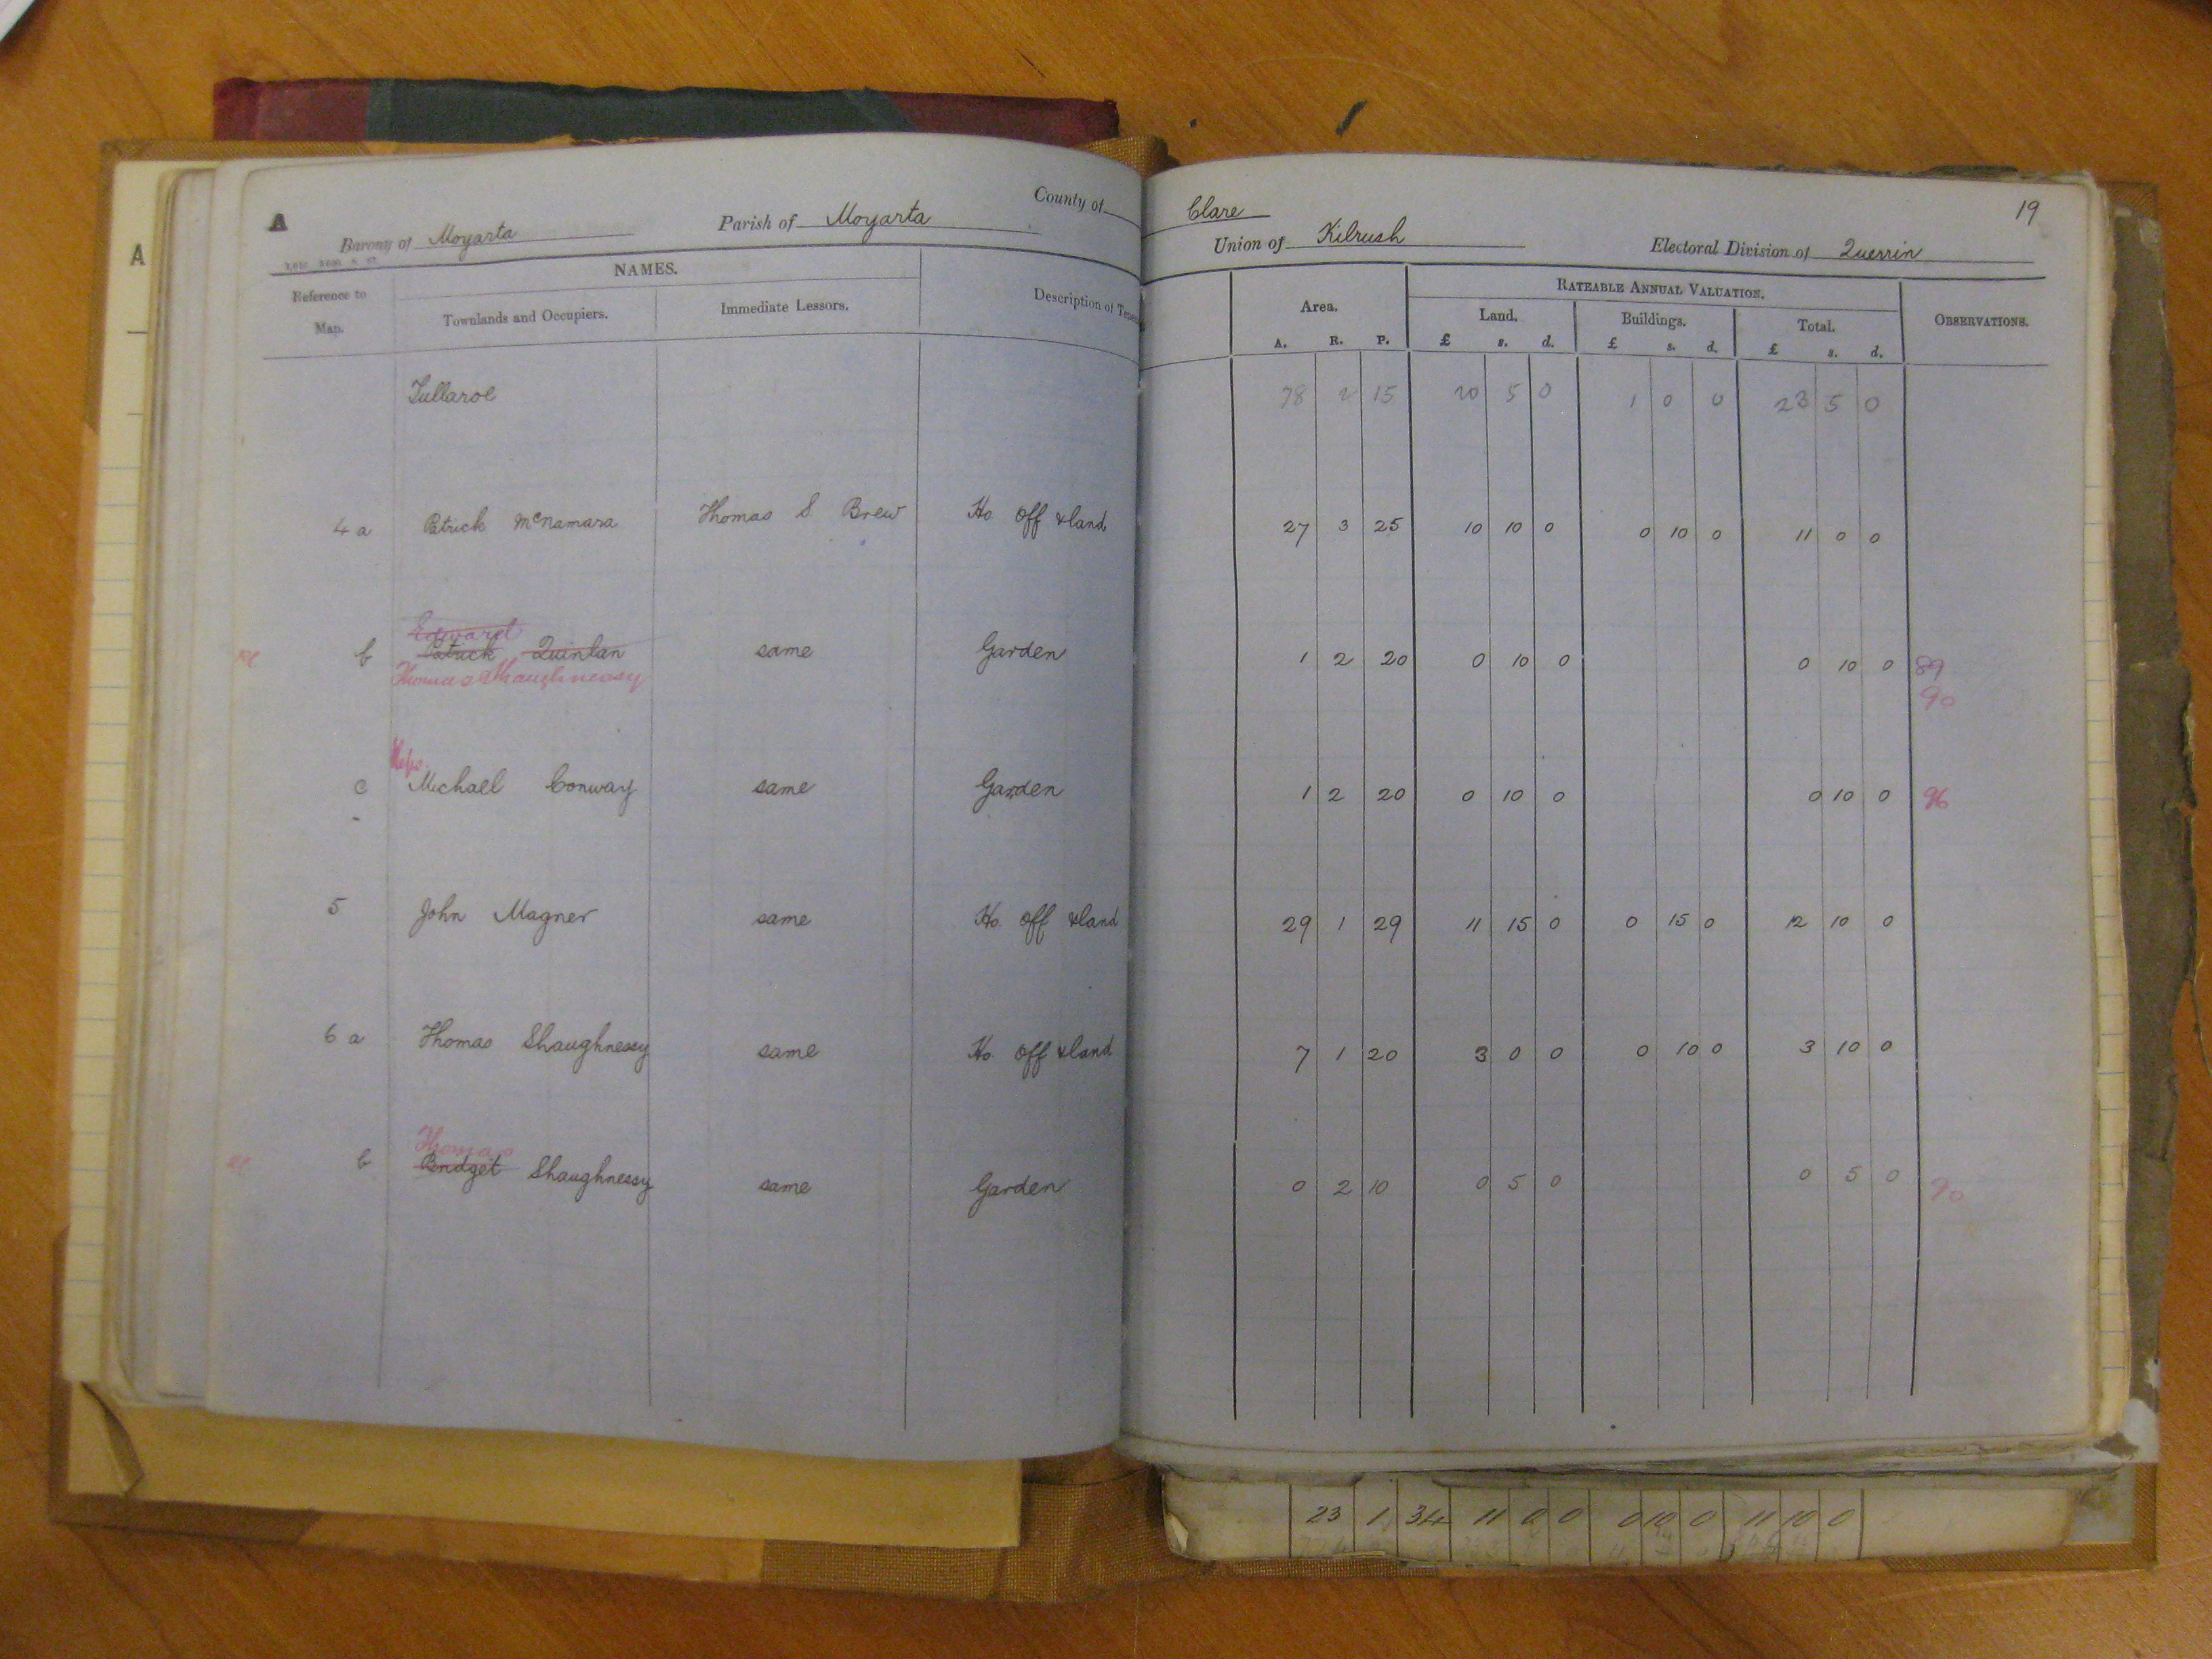 A
A
County of Clare
19
Barony of Moyarta Parish of Moyarta Union of Kilrush Electoral Division of Querrin
NAMES. RATEABLE ANNUAL VALUATION.
Reference to Map. Townlands and Occupiers. Immediate Lessors. Description of Tene Area. Land. Buildings. Total. OBSERVATIONS.
A. R. P. £ s. d. £ s. d. £ s. d.
Tullaroe 78 2 15 20 5 0 1 0 0 23 5 0
4 a Patrick McNamara Thomas S Brew Ho Off & land 27 3 25 10 10 0 0 10 0 11 0 0
Edward
b Patrick Quinlan same Garden 1 2 20 0 10 0 0 10 0 89
Thomas Shaughnessy 90
Reps.
c Michael Conway same Garden 1 2 20 0 10 0 0 10 0 96
5 John Magner same Ho. Off & land 29 1 29 11 15 0 0 15 0 12 10 0
6 a Thomas Shaughnessy same Ho. Off & land 7 1 20 3 0 0 0 10 0 3 10 0
Thomas
b Bridget Shaughnessy same Garden 0 2 10 0 5 0 0 5 0 90
23 1 34 11 0 0 0 10 0 11 10 0